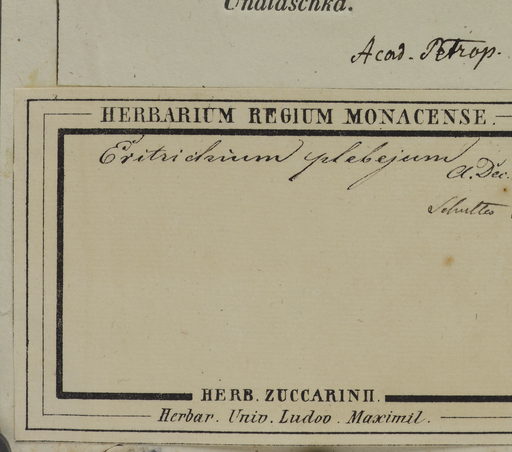 Unalaschka.
Acad. Petrop.
HERBARIUM REGIUM MONACENSE.
Eritrichium plebejum
A.Dec.
Schultes
HERB. ZUCCARINII.
Herbar. Univ. Ludov. Maximil.